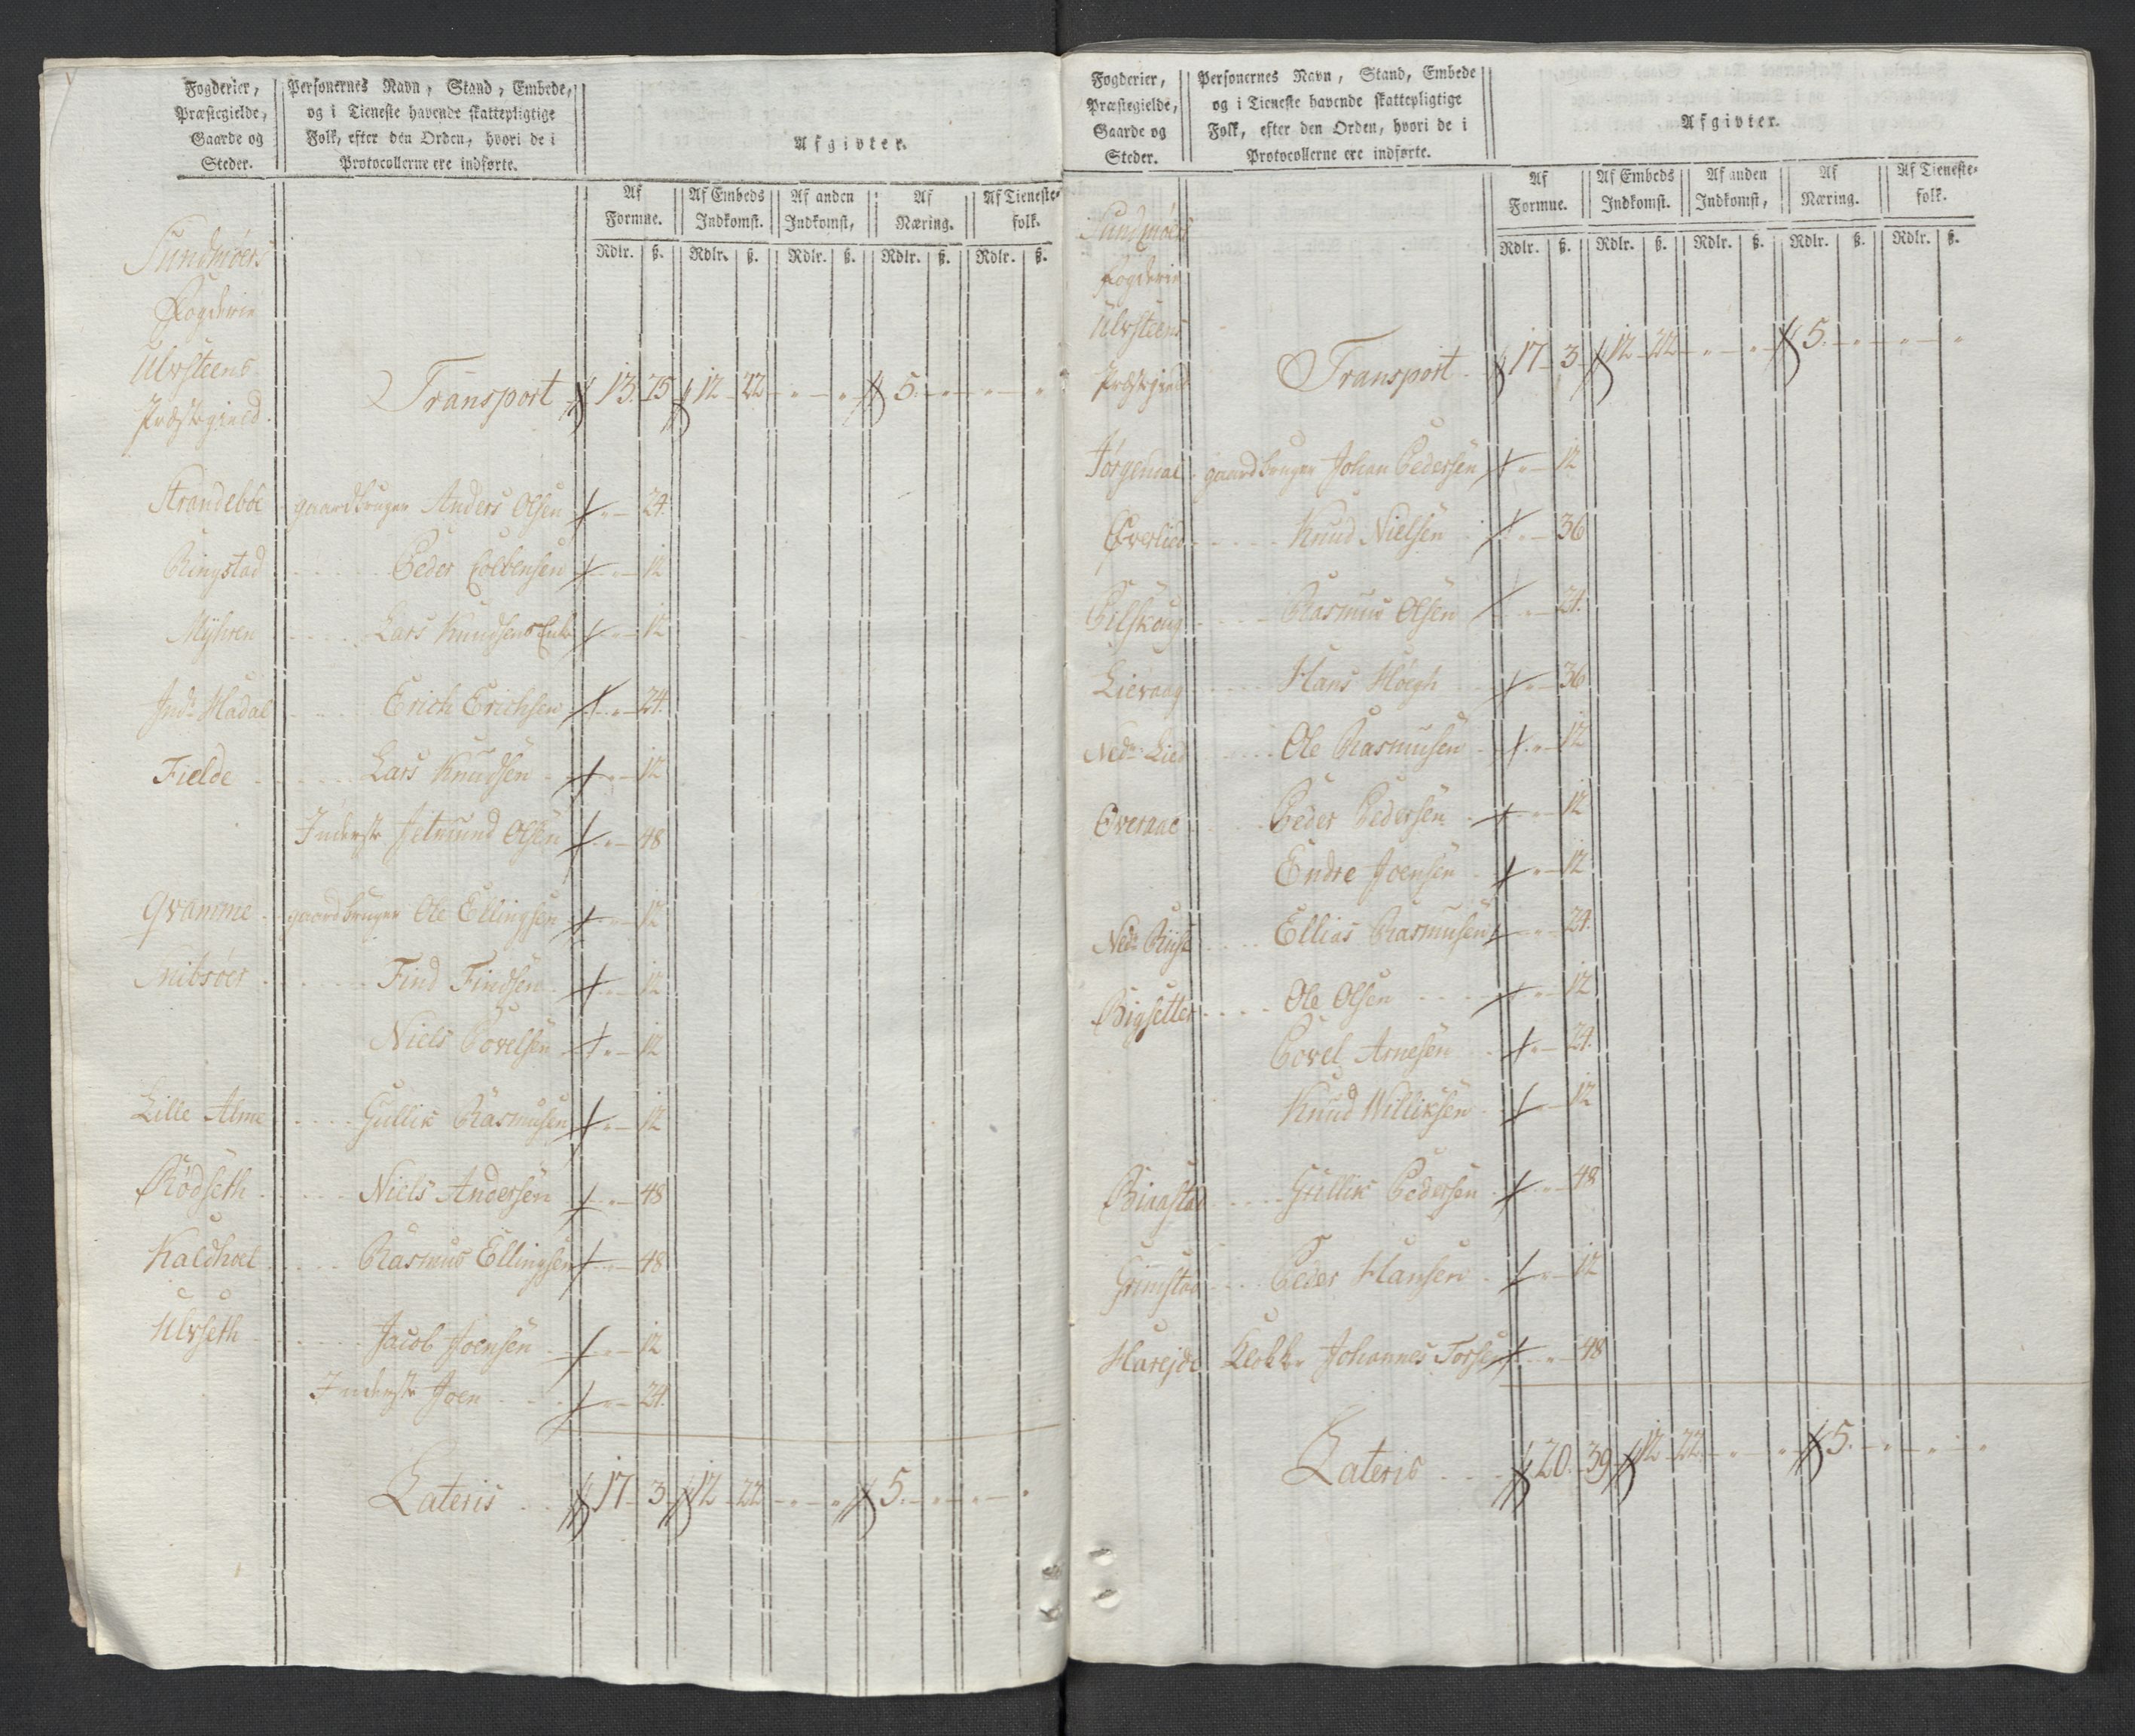 Fogderier, Præstegielde, Gaarde og Steder.
Personernes Navn, Stand, Embede, og i Tieneste havende skattepligtige Folk, efter den Orden, hvori de i Protocollerne ere indførte.
Afgivter.
Af Formue. Af Embeds Indkomst. Af anden Indkomst, Af Næring. Af Tieneste-folk.
Rdlr. ß. Rdlr. ß. Rdlr. ß. Rdlr. ß. Rdlr. ß.
Sundmøers
Fogderie
Ulvsteens
Præstegield.
Transport 13. 75 12 22 " " 5. " " "
Strandeboe gaardbruger Anders Olsen " 24.
Ringstad Peder Colbensen " 12
Myhren Lars Knudsens Enke " 12
Indr Hadal Erich Erichsen " 24.
Fielde Lars Knudsen " 12
Inderste Jetmund Olsen " 48
Qvamme gaardbruger Ole Ellingsen " 12
Find Findsen " 12
Niels Povelsen " 12
Lille Alme Gullik Rasmusen " 12
Rødseth Niels Andersen " 48
Kaldhoel Rasmus Ellingsen " 48
Ulvseth Jacob Joensen " 12
Inderste Joen " 24.
Lateris 17 3 12 22 " " 5. " " "
Fogderier, Præstegielde, Gaarde og Steder.
Personernes Navn, Stand, Embede og i Tieneste havende skattepligtige Folk, efter den Orden, hvori de i Protocollerne ere indførte.
Afgivter.
Af Formue. Af Embeds Indkomst. Af anden Indkomst, Af Næring. Af Tieneste-folk.
Rdlr. ß. Rdlr. ß. Rdlr. ß. Rdlr. ß. Rdlr. ß.
Sundmøers
Fogderie
Ulvsteens
Præstegield
Transport 17 3 12 22 " " 5. " " "
Jørgendal gaardbruger Johan Pedersen " 12
Øverlied Knud Nielsen " 36
Pilskoug Rasmus Olsen " 24.
Lievaag Hans Høegh " 36
Nedr Lied Ole Rasmusen " 12
Overaae Peder Pedersen " 12
Endre Joensen " 12
Nedr Riise Ellias Rasmusen " 24.
Bigsetter Ole Olsen " 12
Povel Arnesen " 24.
Knud Williksen " 12
Biaastad Gullik Pedersen " 48
Grimstad Peder Hansen " 12
Harejde Klokker Johannes Torsen " 48
Lateris 20. 39 12 22. " " 5. " " "